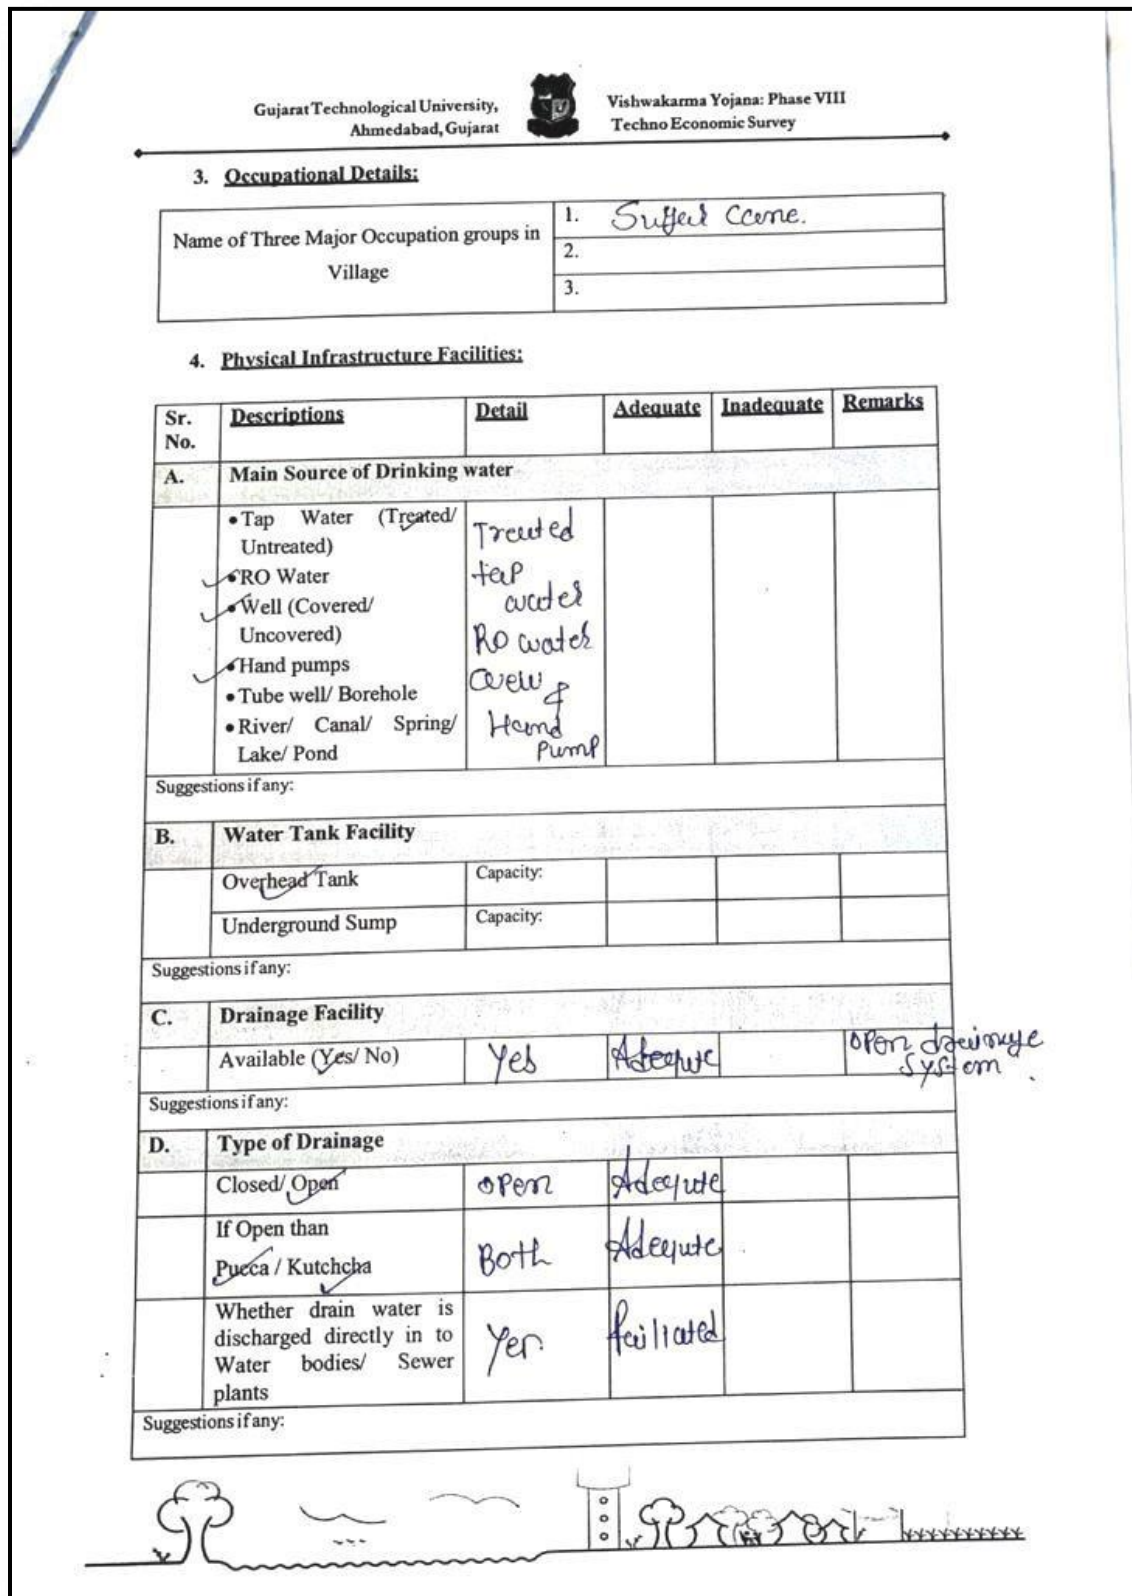 Gujarat Technological University,
Ahmedabad, Gujarat
Vishwakarma Yojana: Phase VIII
Techno Economic Survey
3. Occupational Details:
Name of Three Major Occupation groups in
Village
1. Cane.
2.
3.
4. Physical Infrastructure Facilities:
Sr.
No.
Descriptions
Detail
Adequate
Inadequate
Remarks
A.
Main Source of Drinking water
•Tap Water (Treated/
Untreated)
•RO Water
•Well (Covered/
Uncovered)
•Hand pumps
•Tube well/ Borehole
•River/ Canal/ Spring/
Lake/ Pond
Treated
tap
water
RO water
well &
Hand
Pump
Suggestions if any:
B.
Water Tank Facility
Overhead Tank
Capacity:
Underground Sump
Capacity:
Suggestions if any:
C.
Drainage Facility
Available (Yes/ No)
Yes
open drainage
system
Suggestions if any:
D.
Type of Drainage
Closed/ Open
open
If Open than
Pucca / Kutchcha
Both
Whether drain water is
discharged directly in to
Water bodies/ Sewer
plants
Yes
Suggestions if any: